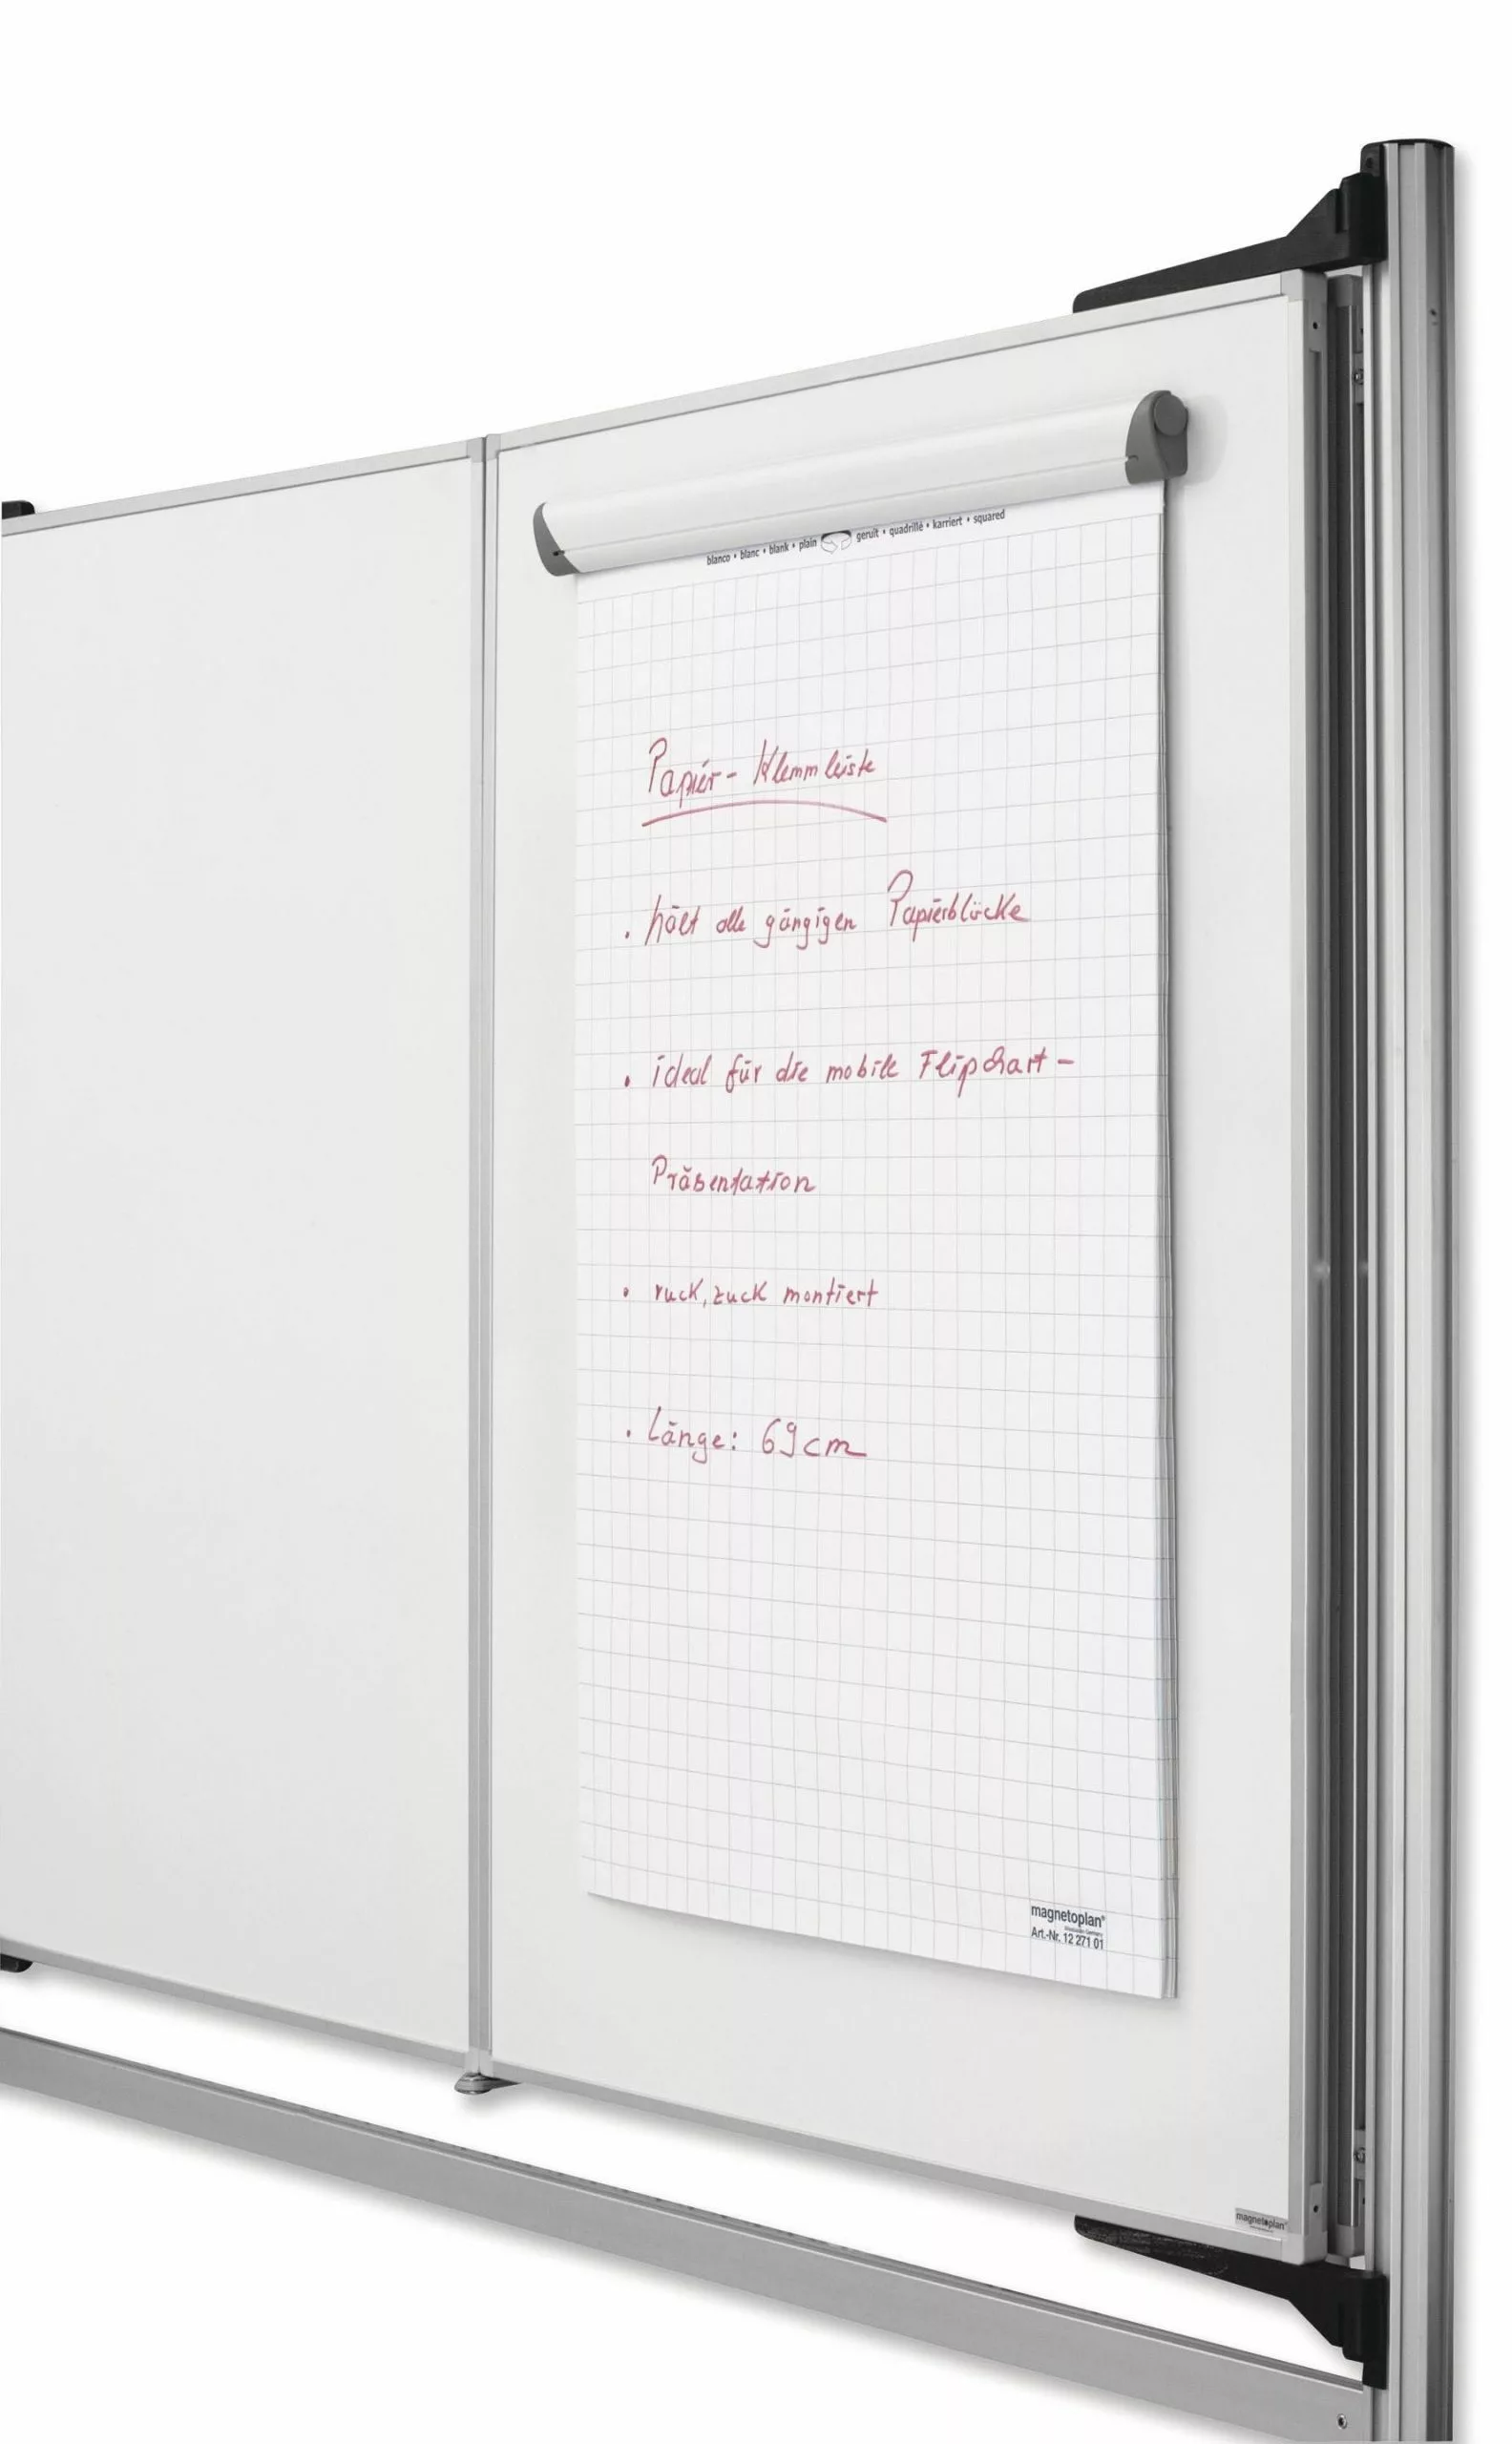 blanco • blanc • blank • plain geruit • quadrillé • karriert • squared
Papier- Klemmleiste
. hält alle gängigen Papierblöcke
. ideal für die mobile Flipchart-
Präsentation
. ruck, zuck montiert
. Länge: 69cm
magnetoplan®
Art.-Nr. 12 271 01
magnetoplan®